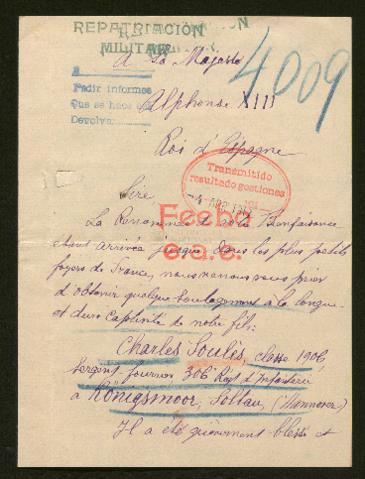 REPATRIACIÓN
MILITAR
A Sa Majesté
4009
Pedir informes
Que se hace
Devolva
Alphonse XIII
Roi d'Espagne
Transmitido
resultado gestiones
Sire
La Renommée de votre Bienfaisance
étant arrivée jusque dans les plus petits
foyers de France, nous venons vous prier
d'obtenir quelque soulagement à la longue
et dure captivité de notre fils:
Fecho
Charles Soulès, classe 1906,
Sergent fourrier 306e Regt d'Infanterie
à Königsmoor, Soltau, (Hannover)
Il a été grièvement blessé et